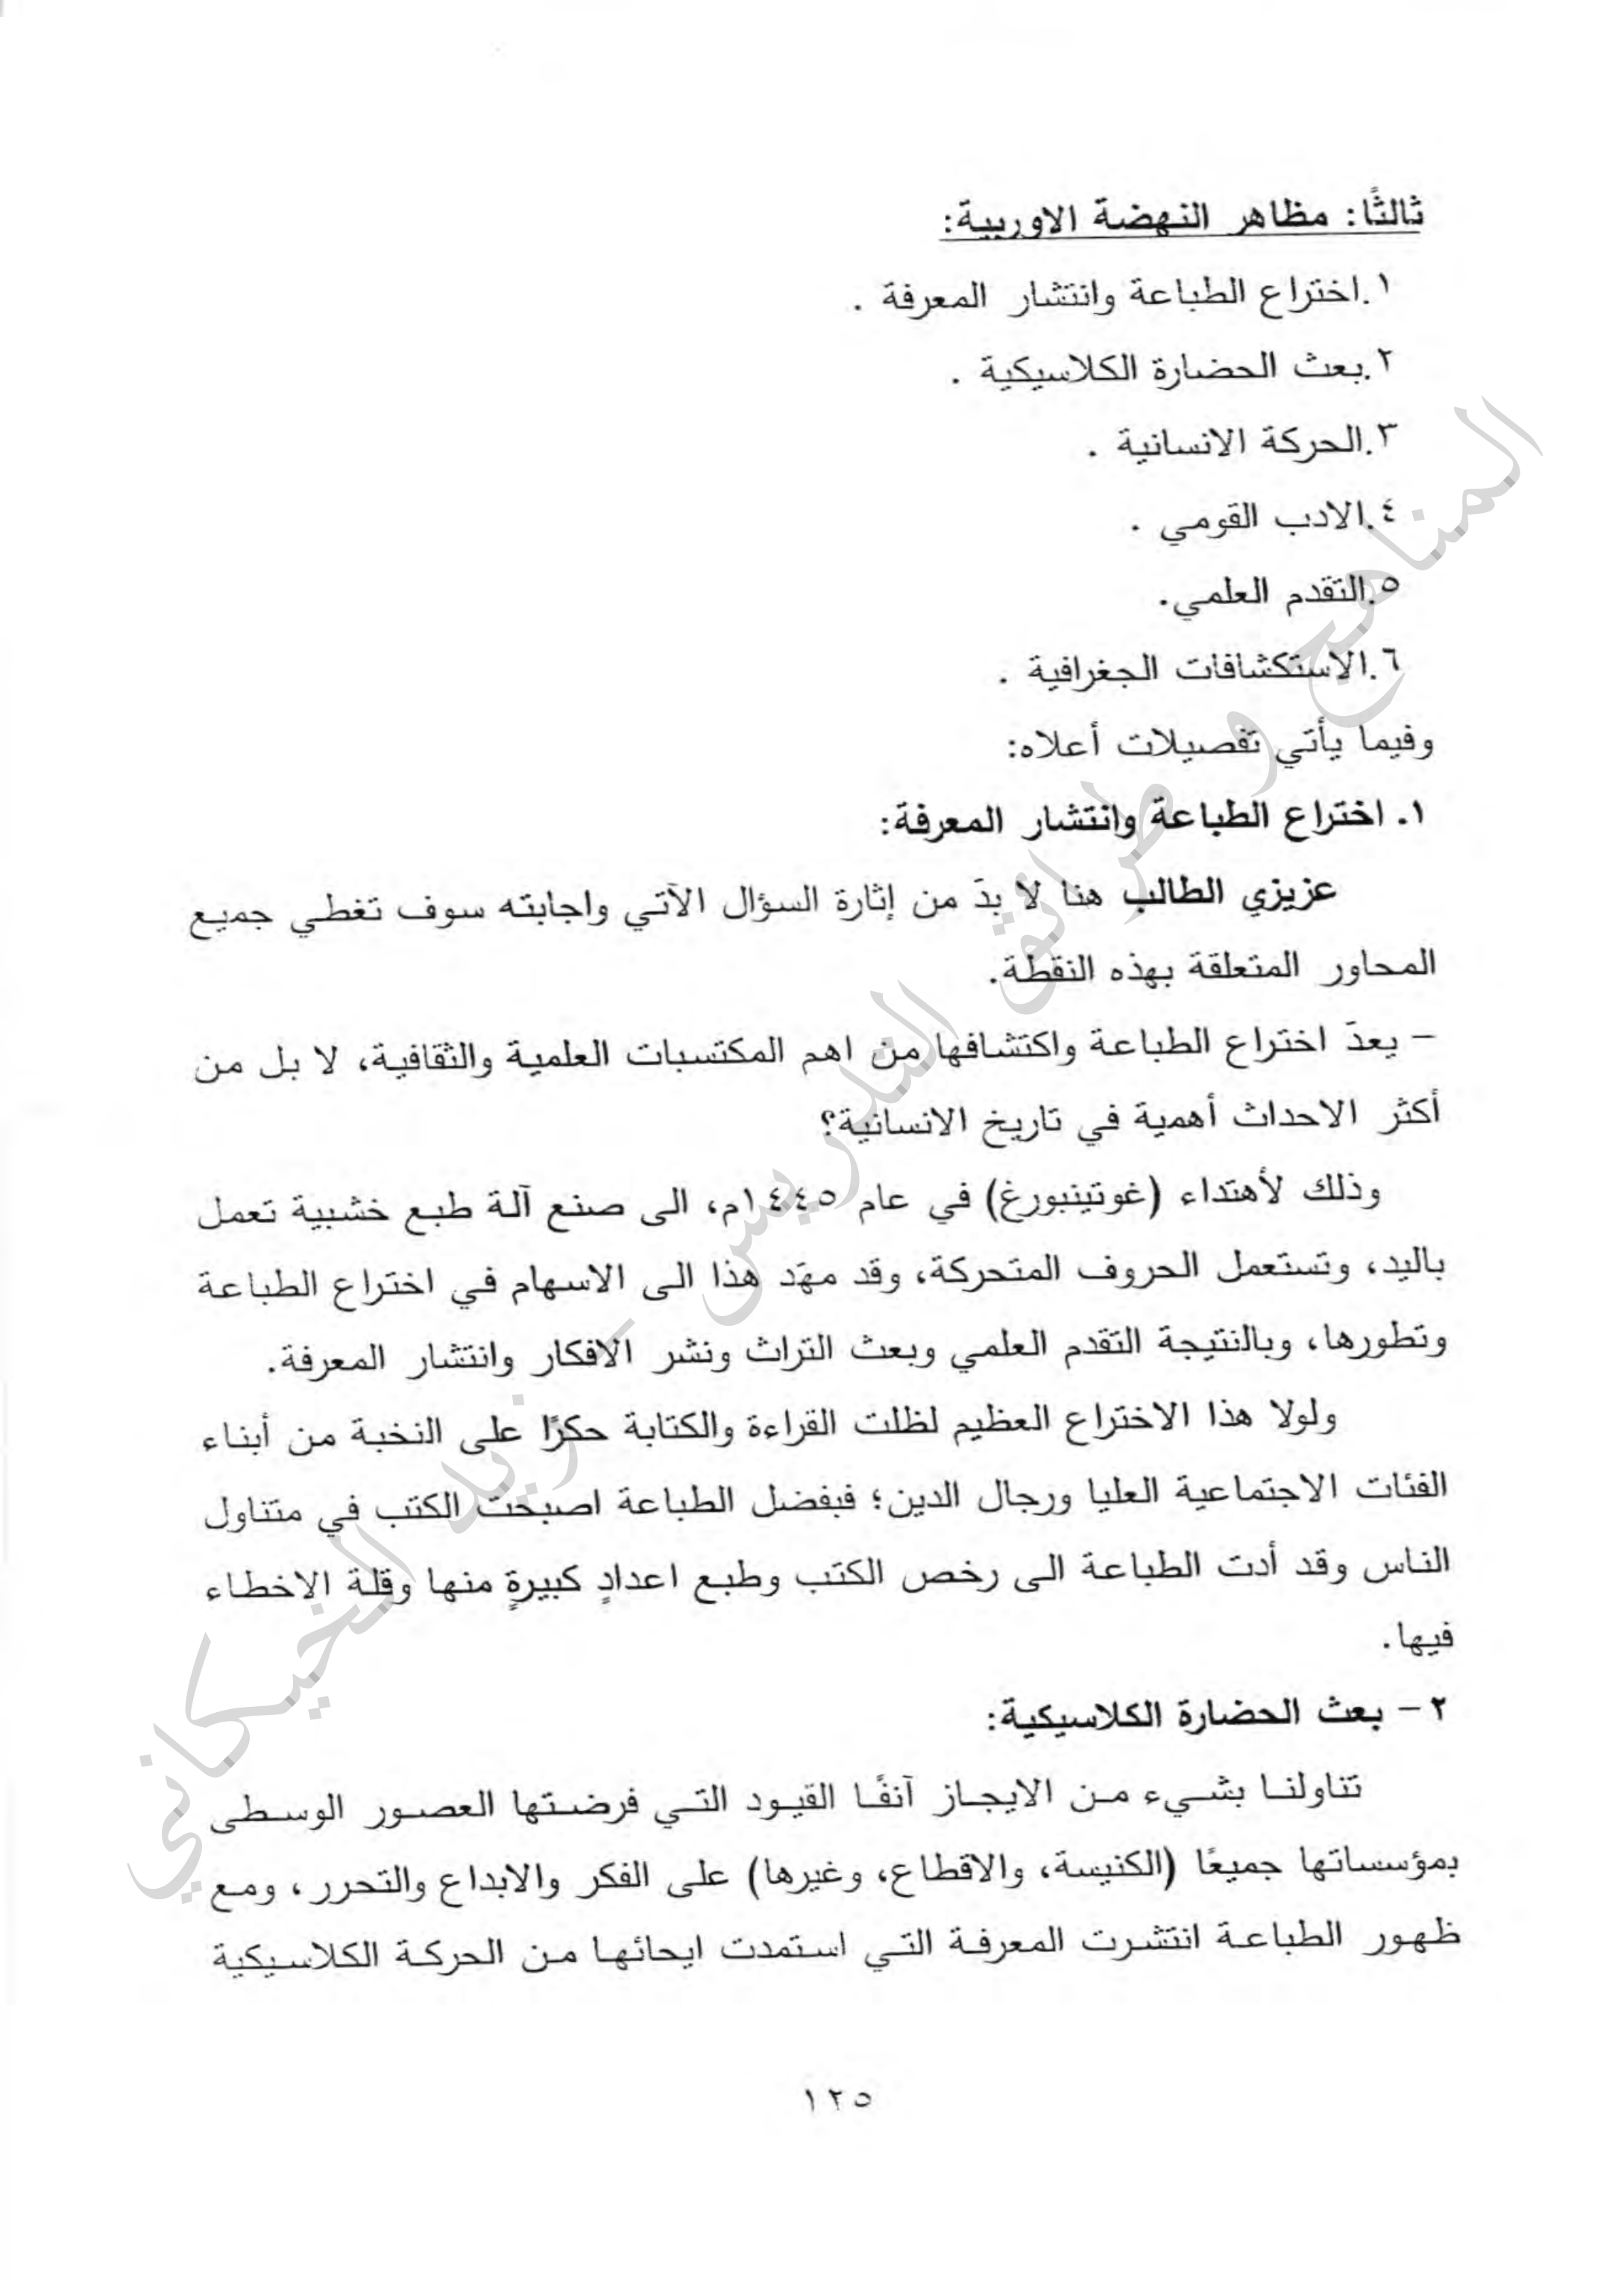 ثالثًا: مظاهر النهضة الاوربية:
١.اختراع الطباعة وانتشار المعرفة .
٢.بعث الحضارة الكلاسيكية .
٣.الحركة الانسانية .
٤.الادب القومي .
٥.التقدم العلمي.
٦.الاستكشافات الجغرافية .
وفيما يأتي تفصيلات أعلاه:
١. اختراع الطباعة وانتشار المعرفة:
عزيزي الطالب هنا لا بدَ من إثارة السؤال الآتي واجابته سوف تغطي جميع
المحاور المتعلقة بهذه النقطة.
– يعدَ اختراع الطباعة واكتشافها من اهم المكتسبات العلمية والثقافية، لا بل من
أكثر الاحداث أهمية في تاريخ الانسانية؟
وذلك لأهتداء (غوتينبورغ) في عام ١٤٤٥م، الى صنع آلة طبع خشبية تعمل
باليد، وتستعمل الحروف المتحركة، وقد مهَد هذا الى الاسهام في اختراع الطباعة
وتطورها، وبالنتيجة التقدم العلمي وبعث التراث ونشر الافكار وانتشار المعرفة.
ولولا هذا الاختراع العظيم لظلت القراءة والكتابة حكرًا على النخبة من أبناء
الفئات الاجتماعية العليا ورجال الدين؛ فبفضل الطباعة اصبحت الكتب في متناول
الناس وقد أدت الطباعة الى رخص الكتب وطبع اعدادٍ كبيرةٍ منها وقلة الاخطاء
فيها.
٢ – بعث الحضارة الكلاسيكية:
تناولنا بشيء من الايجاز آنفًا القيود التي فرضتها العصور الوسطى
بمؤسساتها جميعًا (الكنيسة، والاقطاع، وغيرها) على الفكر والابداع والتحرر، ومع
ظهور الطباعة انتشرت المعرفة التي استمدت ايحائها من الحركة الكلاسيكية
١٢٥
المناهج و طرائق التدريس – زيد الخيكاني